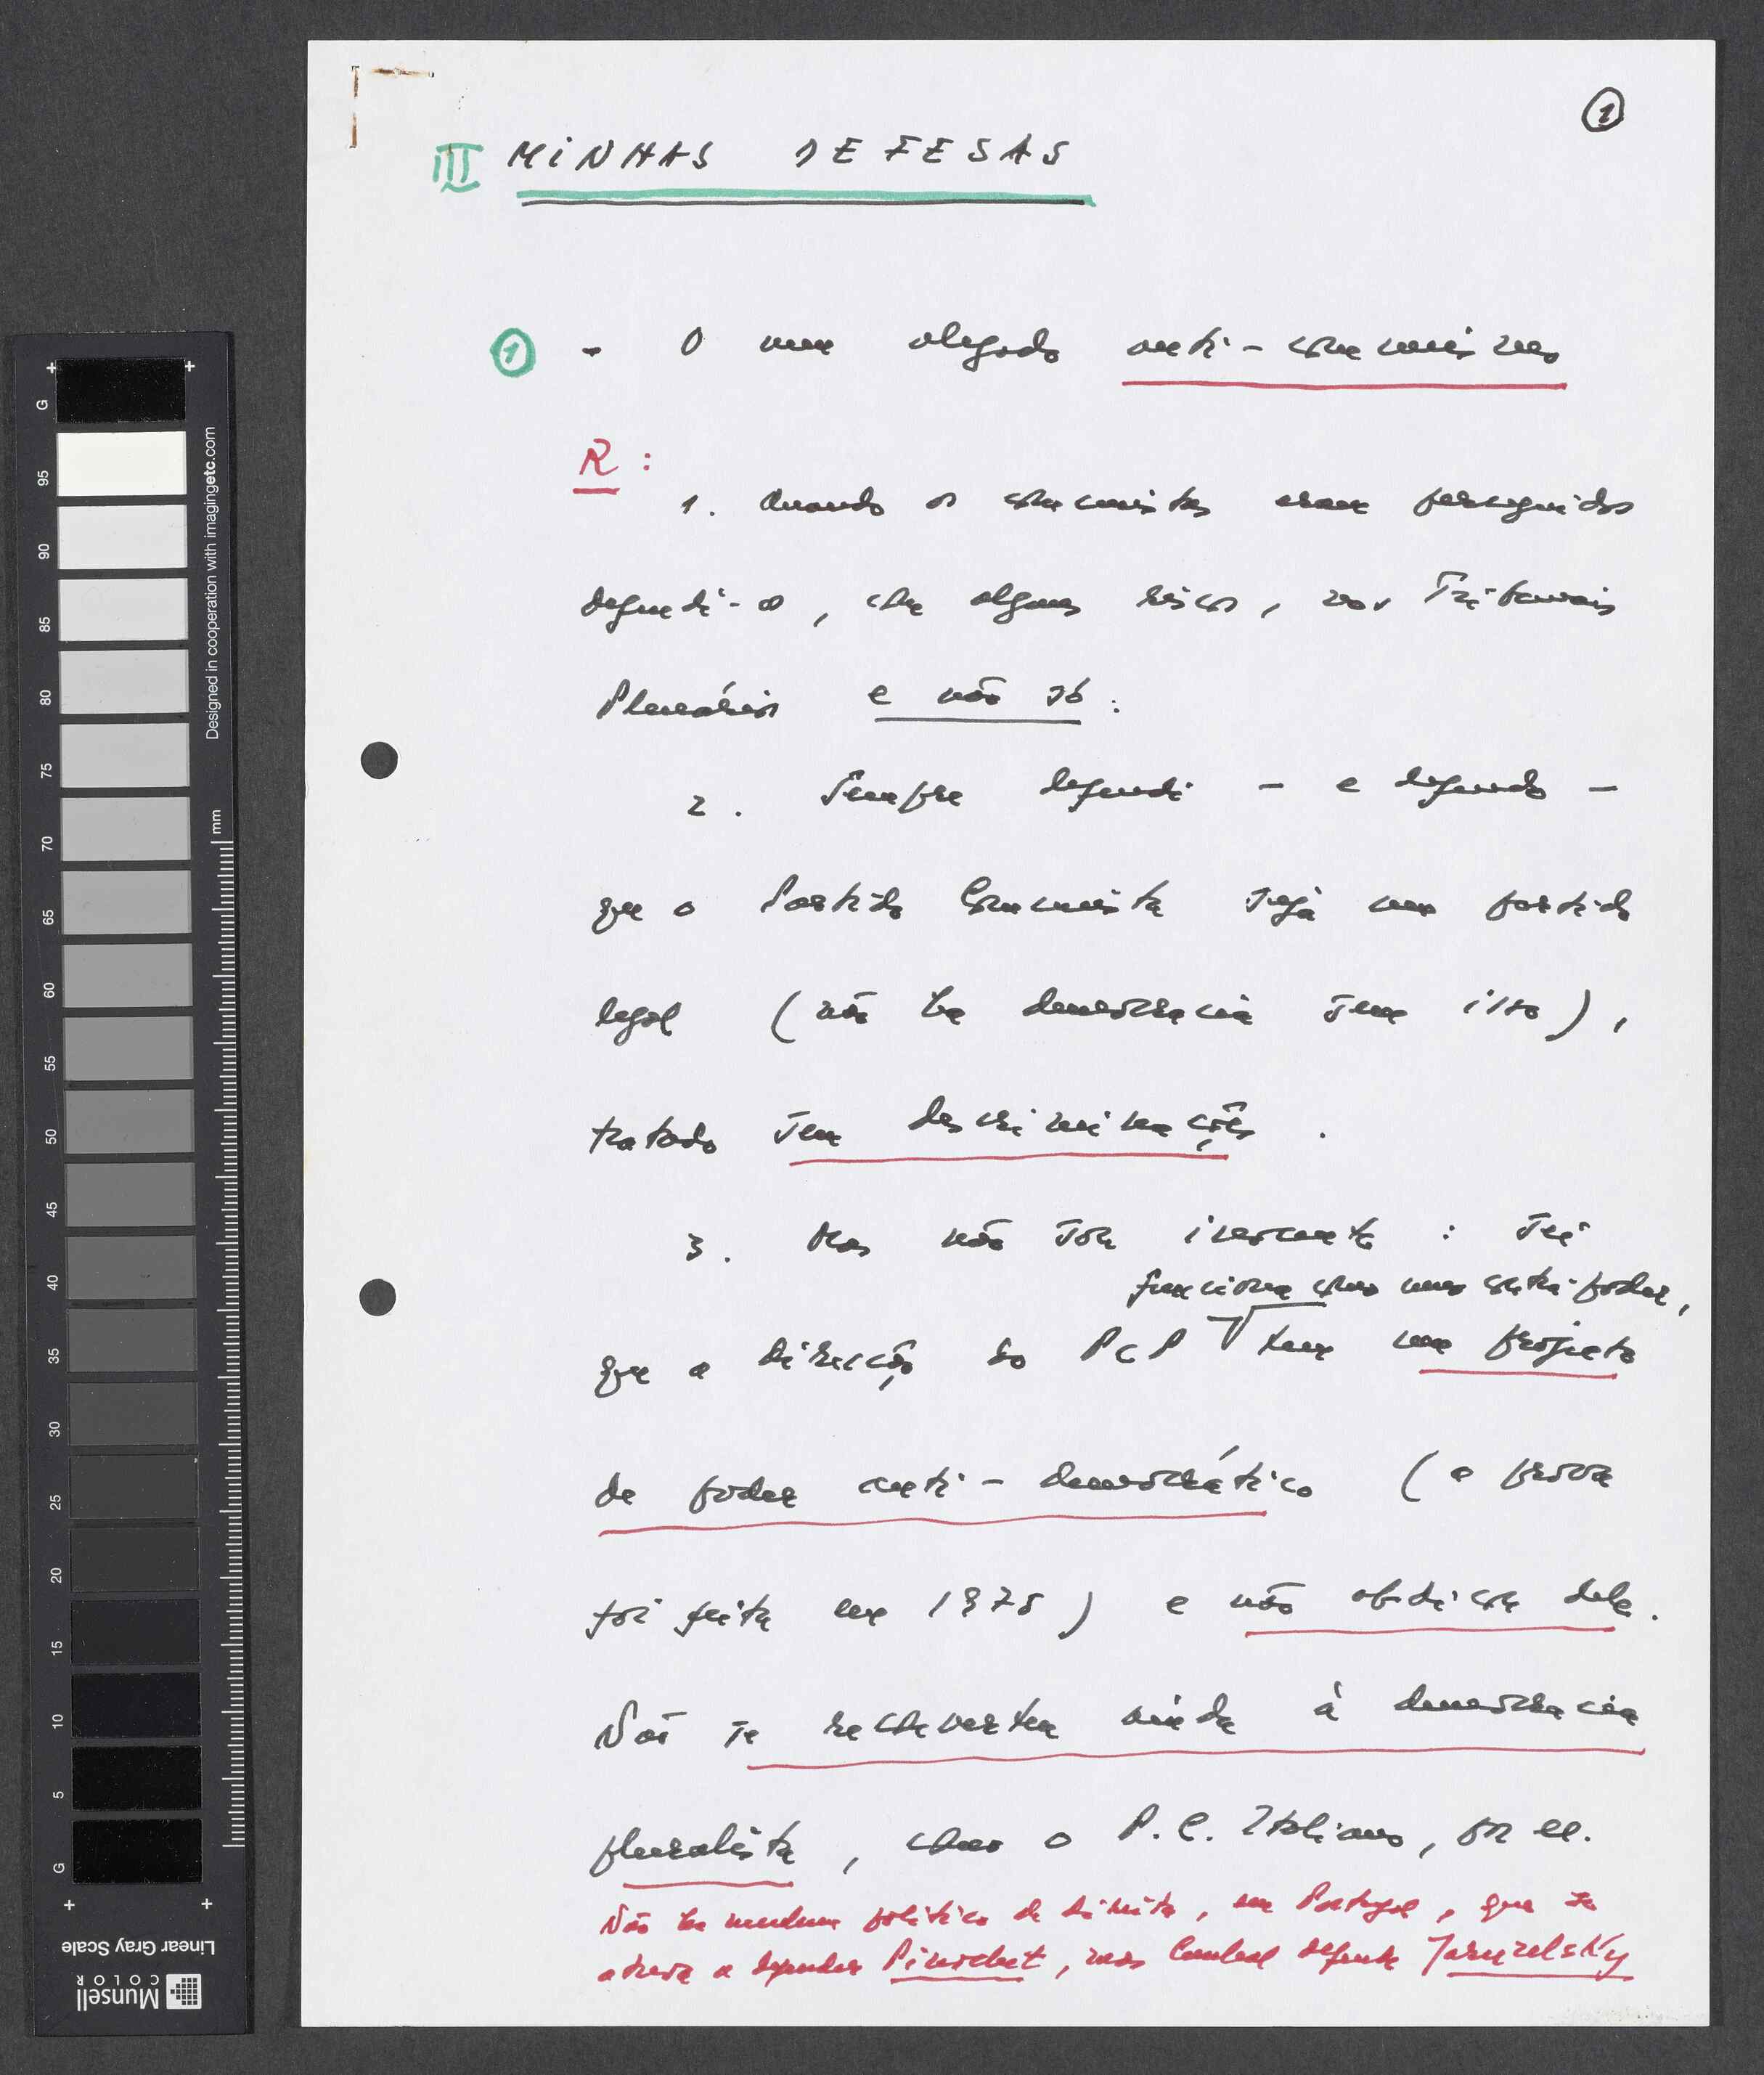 1
III MINHAS DEFESAS
1 - O meu alegado anti-comunismo
R :
1. Quando os comunistas eram perseguidos
defendi-os, com alguns riscos, nos Tribunais
Plenários e não só.
2. Sempre defendi - e defendo -
que o Partido Comunista seja um partido
legal (não há democracia sem isso),
tratado sem descriminações.
3. Mas não sou inocente : sei
funciona como um contra-poder,
que a direcção do PCP tem um projecto
de poder anti-democrático (a prova
foi feita em 1975) e não abdicou dele.
Não se reconverteu ainda à democracia
pluralista, como o P.C. Italiano, por ex.
Não há nenhum político de direita, em Portugal, que se
atreva a defender Pinochet, mas Cunhal defende Jaruzelsky
G
95
90
85
80
75
70
65
60
55
50
45
40
35
30
25
20
15
10
5
G
mm
Designed in cooperation with imagingetc.com
Linear Gray Scale
Munsell
COLOR